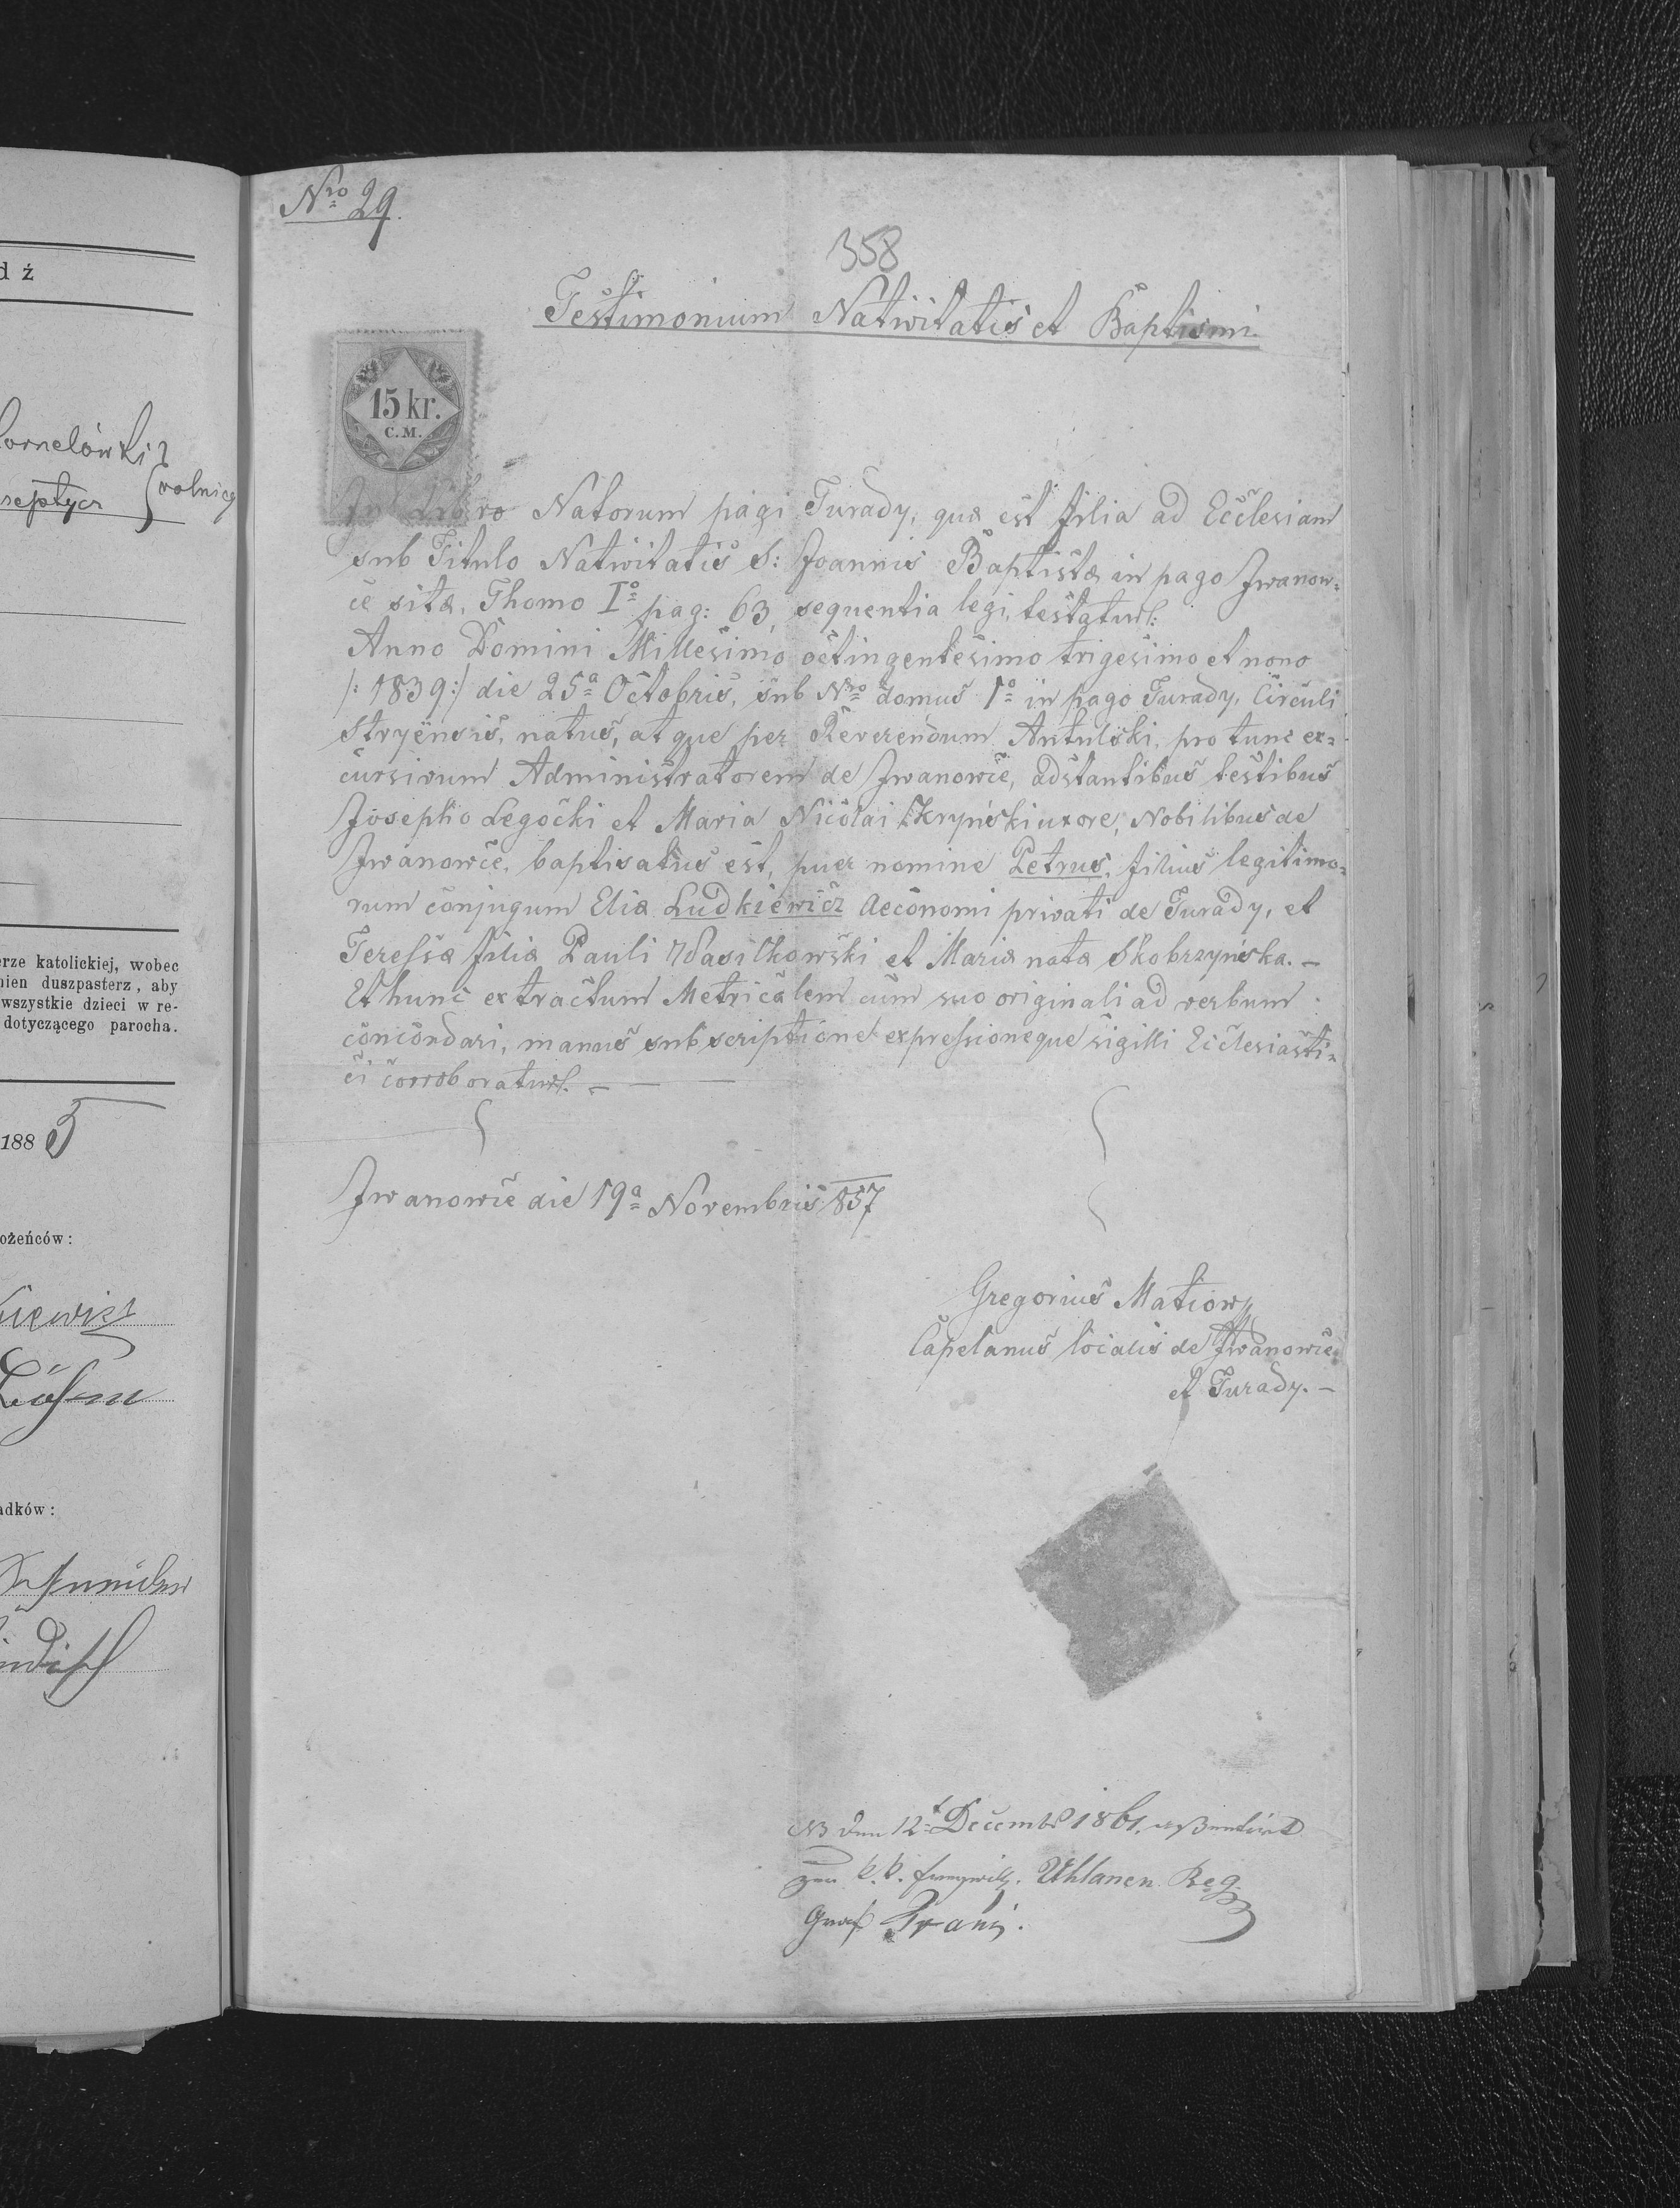 dź
ornelówki
septycz } rolnicy
rze katolickiej, wobec
nien duszpasterz, aby
wszystkie dzieci w re-
dotyczącego parocha.
188 5
ożeńców:
kiewicz
adków:
Nro 29.
358
Testimonium Natiwitatis et Baptismi
15 kr.
C.M.
In Libro Natorum pagi Turady, quæ est filia ad Ecclesiam
sub Titulo Natiwitatis S: Joannis Baptistæ in pago Jwanow=
ce sitæ, Thomo Io pag: 63, sequentia legi, testatur:
Anno Domini Millesimo octingentesimo trigesimo et nono
/: 1839 :/ die 25a Octobris, sub Nro domus 1o in pago Turady, Circuli
Stryensis, natus, atque per Reverendum Antulski, pro tunc ex=
cursivum Administratorem de Jwanowce, adstantibus testibus
Josepho Legocki et Maria Nicolai Skrypiski uxore, Nobilibus de
Jwanowce, baptisatus est, puer nomine Petrus, filius legitimo=
rum conjugum Eliæ Ludkiewicz Aeconomi privati de Turady, et
Teressæ filiæ Pauli Wasilkowski et Mariæ natæ Skobrzyńska. –
Et hunc extractum Metricalem cum suo originali ad verbum
concordari, manus subscriptione expressioneque sigilli Ecclesiasti=
ci corroboratur. –
Jwanowce die 19a Novembris 857
Gregorius Matiow
Capelanus localis de Jwanowce
et Turady. –
NB den 12t Decemb 1861 assentirt
zum k. k. freywill. Uhlanen Reg.
Graf Trani.